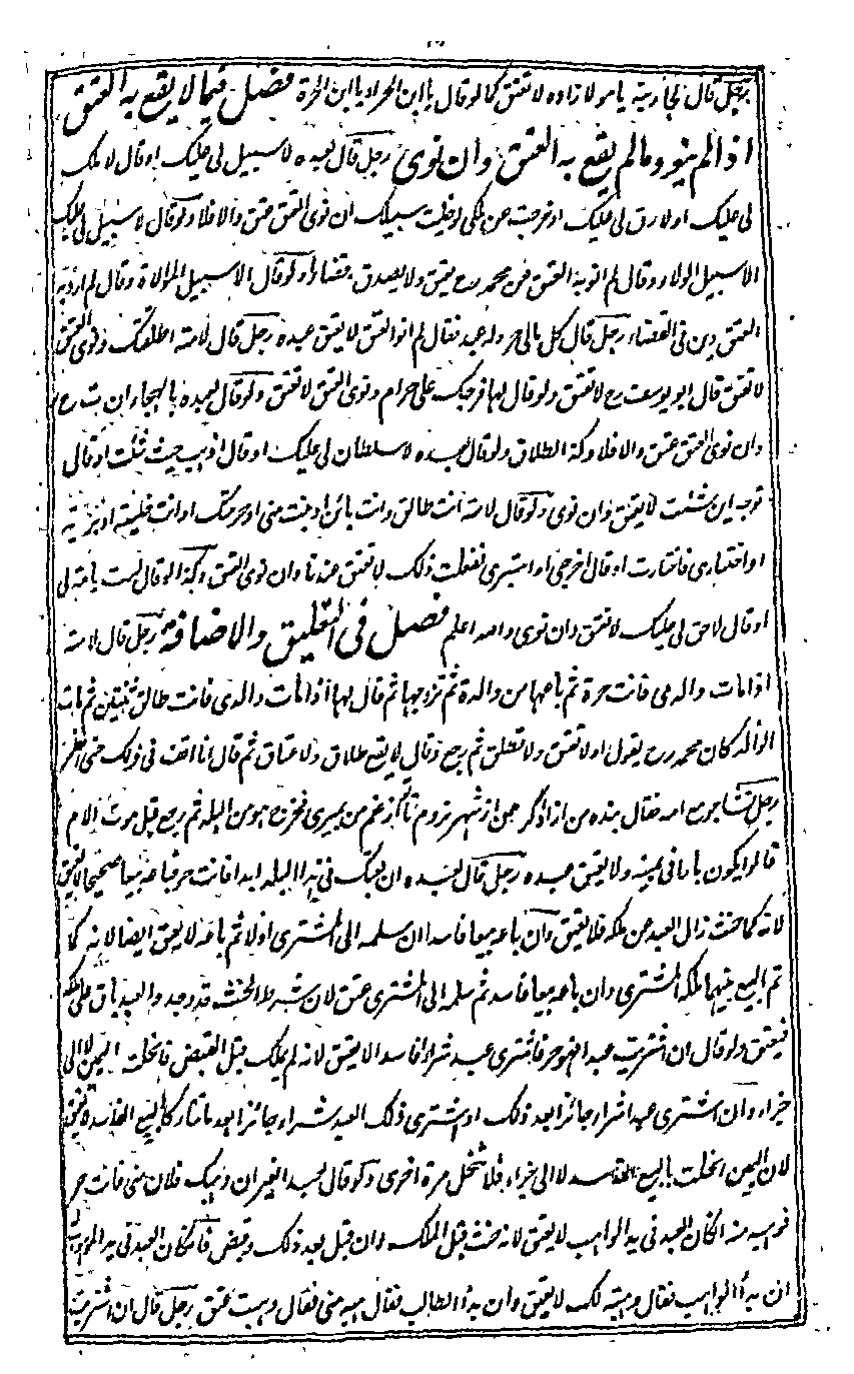 رجل قال لجاريته يا مولازاده لا تعتق كما لو قال يا ابن الحر او يا ابن الحرة فصل فيما لا يقع به العتق
اذا لم ينو وما لم يقع به العتق وان نوى رجل قال لعبده لا سبيل لى عليك او قال لا ملك
لى عليك او لا رق لى عليك او خرجت عن ملكى او خليت سبيلك ان نوى العتق عتق والا فلا ولو قال لا سبيل لى عليك
الا سبيل الولاء وقال لم انو به العتق فعن محمد رح يعتق ولا يصدق قضاء ولو قال الا سبيل الموالاة وقال لم ارد به
العتق دين فى القضاء رجل قال كل مالى حر وله عبد فقال لم انو العتق لا يعتق عبده رجل قال لامته اطلقتك ونوى العتق
لا تعتق قال ابو يوسف رح لا تعتق ولو قال لها فرجك على حرام ونوى العتق لا تعتق ولو قال لعبده بالهجاء ان ت ح ر
وان نوى العتق عتق والا فلا وكذا الطلاق ولو قال لعبده لا سلطان لى عليك او قال اذهب حيث شئت او قال
توجه اين شئت لا يعتق وان نوى ولو قال لامته انت طالق وانت بائن او بنت منى او حرمتك او انت خلية او برية
او اختارى فاختارت او قال اخرجى او استبرى ففعلت ذلك لا تعتق عندنا وان نوى العتق وكذا لو قال لست بامة لى
او قال لا حق لى عليك لا تعتق وان نوى والله اعلم فصل فى التعليق والاضافة رجل قال لامته
اذا مات والدى فانت حرة ثم باعها من والده ثم تزوجها ثم قال لها اذا مات والدى فانت طالق ثنتين ثم مات
الوالد كان محمد رح يقول اولا تعتق ولا تطلق ثم رجع وقال لا يقع طلاق ولا عتاق ثم قال انا اقف فى ذلك حتى انظر
رجل تشاجر مع امه فقال بنده من ازاد كر من از شهر نروم تا از غم من بميرى فخرج هو من البلد ثم رجع قبل موت الام
قالوا يكون بارا فى يمينه ولا يعتق عبده رجل قال لعبده ان بعتك فى هذا البلد ابدا فانت حر فباعه بيعا صحيحا لا يعتق
لانه كما حنث زال العبد عن ملكه فلا يعتق وان باعه بيعا فاسدا ان سلمه الى المشترى اولا ثم باعه لا يعتق ايضا لانه كما
تم البيع بينهما ملكه المشترى وان باعه بيعا فاسدا ثم سلمه الى المشترى عتق لان شرط الحنث قد وجد والعبد باق على ملكه
فيعتق ولو قال ان اشتريت عبدا فهو حر فاشترى عبدا شراء فاسدا لا يعتق لانه لم يملك قبل القبض فانحلت اليمين لا الى
جزاء وان اشترى عبدا شراء جائزا بعد ذلك او اشترى ذلك العبد شراء جائزا بعد ما تتاركا البيع الفاسد لا يعتق
لان اليمين انحلت بالبيع الفاسد لا الى جزاء فلا تنحل مرة اخرى ولو قال لعبد الغير ان وهبك فلان منى فانت حر
فوهبه منه ان كان العبد فى يد الواهب لا يعتق لانه حنث قبل الملك وان قبل بعد ذلك وقبض وان كان العبد فى يد الموهوب له
ان بدأ الواهب فقال وهبته لك لا يعتق وان بدأ الطالب فقال هبه منى فقال وهبت عتق رجل قال ان اشتريت